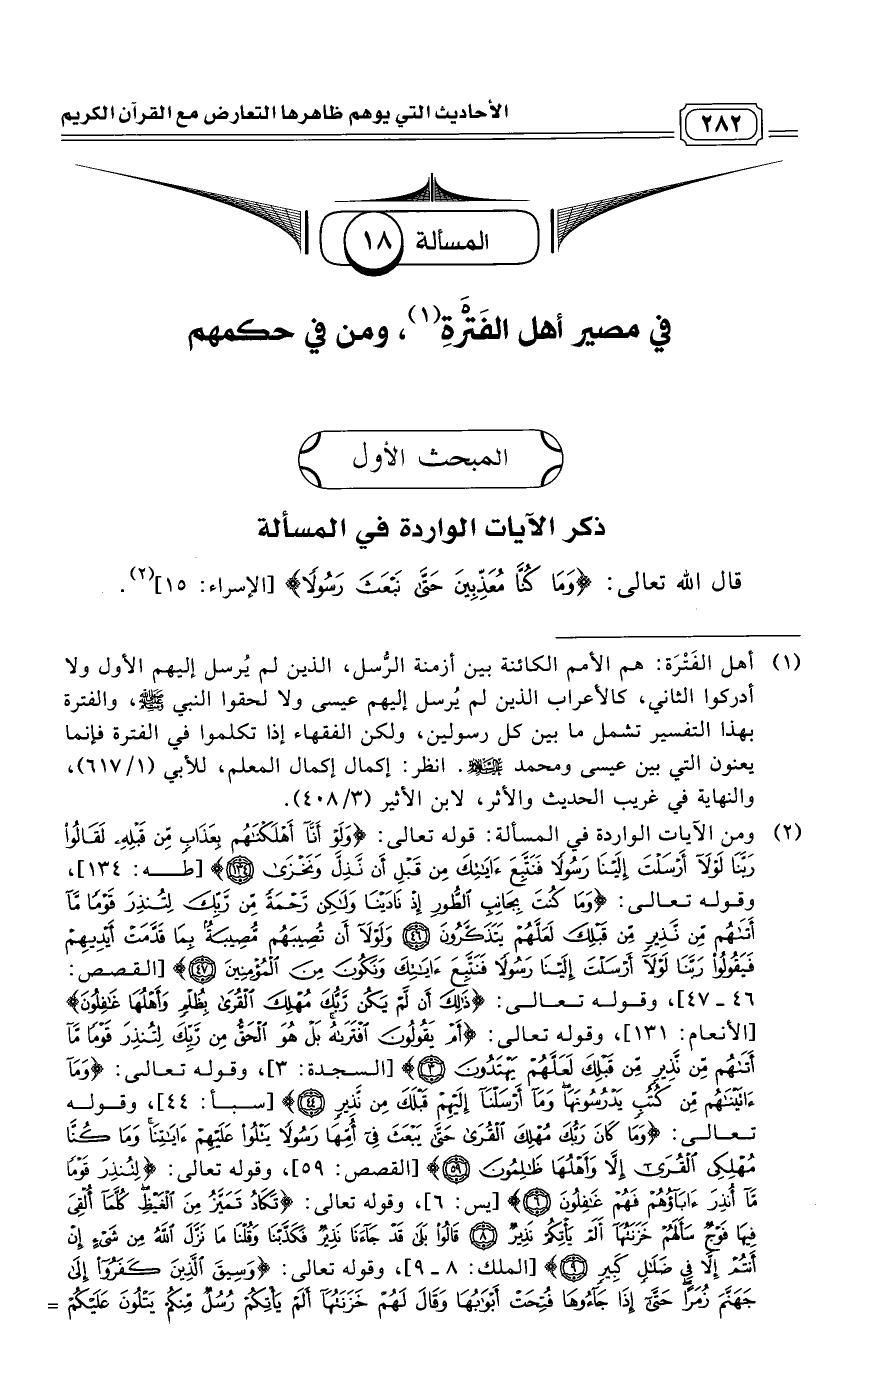 ٢٨٢
الأحاديث التي يوهم ظاهرها التعارض مع القرآن الكريم
المسألة ١٨
في مصير أهل الفَتْرَةِ(١)، ومن في حكمهم
المبحث الأول
ذكر الآيات الواردة في المسألة
قال الله تعالى: ﴿وَمَا كُنَّا مُعَذِّبِينَ حَتَّىٰ نَبْعَثَ رَسُولًا﴾ [الإسراء: ١٥](٢).
(١) أهل الفَتْرَة: هم الأمم الكائنة بين أزمنة الرُّسل، الذين لم يُرسل إليهم الأول ولا
أدركوا الثاني، كالأعراب الذين لم يُرسل إليهم عيسى ولا لحقوا النبي ﷺ، والفترة
بهذا التفسير تشمل ما بين كل رسولين، ولكن الفقهاء إذا تكلموا في الفترة فإنما
يعنون التي بين عيسى ومحمد ﷺ. انظر: إكمال إكمال المعلم، للأبي (١/ ٦١٧)،
والنهاية في غريب الحديث والأثر، لابن الأثير (٣/ ٤٠٨).
(٢) ومن الآيات الواردة في المسألة: قوله تعالى: ﴿وَلَوْ أَنَّآ أَهْلَكْنَٰهُم بِعَذَابٍ مِّن قَبْلِهِۦ لَقَالُواْ
رَبَّنَا لَوْلَآ أَرْسَلْتَ إِلَيْنَا رَسُولًا فَنَتَّبِعَ ءَايَٰتِكَ مِن قَبْلِ أَن نَّذِلَّ وَنَخْزَىٰ ١٣٤﴾ [طـه: ١٣٤]،
وقوله تعالى: ﴿وَمَا كُنتَ بِجَانِبِ ٱلطُّورِ إِذْ نَادَيْنَا وَلَٰكِن رَّحْمَةً مِّن رَّبِّكَ لِتُنذِرَ قَوْمًا مَّآ
أَتَىٰهُم مِّن نَّذِيرٍ مِّن قَبْلِكَ لَعَلَّهُمْ يَتَذَكَّرُونَ ٤٦ وَلَوْلَآ أَن تُصِيبَهُم مُّصِيبَةٌۢ بِمَا قَدَّمَتْ أَيْدِيهِمْ
فَيَقُولُواْ رَبَّنَا لَوْلَآ أَرْسَلْتَ إِلَيْنَا رَسُولًا فَنَتَّبِعَ ءَايَٰتِكَ وَنَكُونَ مِنَ ٱلْمُؤْمِنِينَ ٤٧﴾ [القصص:
٤٦ ـ ٤٧]، وقوله تعالى: ﴿ذَٰلِكَ أَن لَّمْ يَكُن رَّبُّكَ مُهْلِكَ ٱلْقُرَىٰ بِظُلْمٍ وَأَهْلُهَا غَٰفِلُونَ﴾
[الأنعام: ١٣١]، وقوله تعالى: ﴿أَمْ يَقُولُونَ ٱفْتَرَىٰهُ بَلْ هُوَ ٱلْحَقُّ مِن رَّبِّكَ لِتُنذِرَ قَوْمًا مَّآ
أَتَىٰهُم مِّن نَّذِيرٍ مِّن قَبْلِكَ لَعَلَّهُمْ يَهْتَدُونَ ٣﴾ [السجدة: ٣]، وقوله تعالى: ﴿وَمَآ
ءَاتَيْنَٰهُم مِّن كُتُبٍ يَدْرُسُونَهَا وَمَآ أَرْسَلْنَآ إِلَيْهِمْ قَبْلَكَ مِن نَّذِيرٍ ٤٤﴾ [سبأ: ٤٤]، وقوله
تعالى: ﴿وَمَا كَانَ رَبُّكَ مُهْلِكَ ٱلْقُرَىٰ حَتَّىٰ يَبْعَثَ فِىٓ أُمِّهَا رَسُولًا يَتْلُواْ عَلَيْهِمْ ءَايَٰتِنَا وَمَا كُنَّا
مُهْلِكِى ٱلْقُرَىٰٓ إِلَّا وَأَهْلُهَا ظَٰلِمُونَ ٥٩﴾ [القصص: ٥٩]، وقوله تعالى: ﴿لِتُنذِرَ قَوْمًا
مَّآ أُنذِرَ ءَابَآؤُهُمْ فَهُمْ غَٰفِلُونَ ٦﴾ [يس: ٦]، وقوله تعالى: ﴿تَكَادُ تَمَيَّزُ مِنَ ٱلْغَيْظِ كُلَّمَآ أُلْقِىَ
فِيهَا فَوْجٌ سَأَلَهُمْ خَزَنَتُهَآ أَلَمْ يَأْتِكُمْ نَذِيرٌ ٨ قَالُواْ بَلَىٰ قَدْ جَآءَنَا نَذِيرٌ فَكَذَّبْنَا وَقُلْنَا مَا نَزَّلَ ٱللَّهُ مِن شَىْءٍ إِنْ
أَنتُمْ إِلَّا فِى ضَلَٰلٍ كَبِيرٍ ٩﴾ [الملك: ٨ ـ ٩]، وقوله تعالى: ﴿وَسِيقَ ٱلَّذِينَ كَفَرُوٓاْ إِلَىٰ
جَهَنَّمَ زُمَرًا حَتَّىٰٓ إِذَا جَآءُوهَا فُتِحَتْ أَبْوَٰبُهَا وَقَالَ لَهُمْ خَزَنَتُهَآ أَلَمْ يَأْتِكُمْ رُسُلٌ مِّنكُمْ يَتْلُونَ عَلَيْكُمْ =